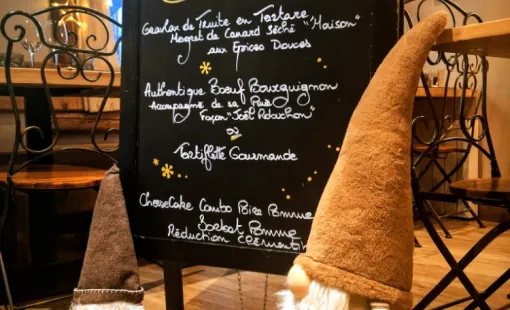 Gravlax de Truite en Tartare
Magret de Canard Séché "Maison"
aux Epices Douces
Authentique Bœuf Bourguignon
Accompagné de sa
Façon "Joël Robuchon"
ou
Tartiflette Gourmande
CheeseCake Combo Poire Pomme
Sorbet Pomme
Réduction Clémentin